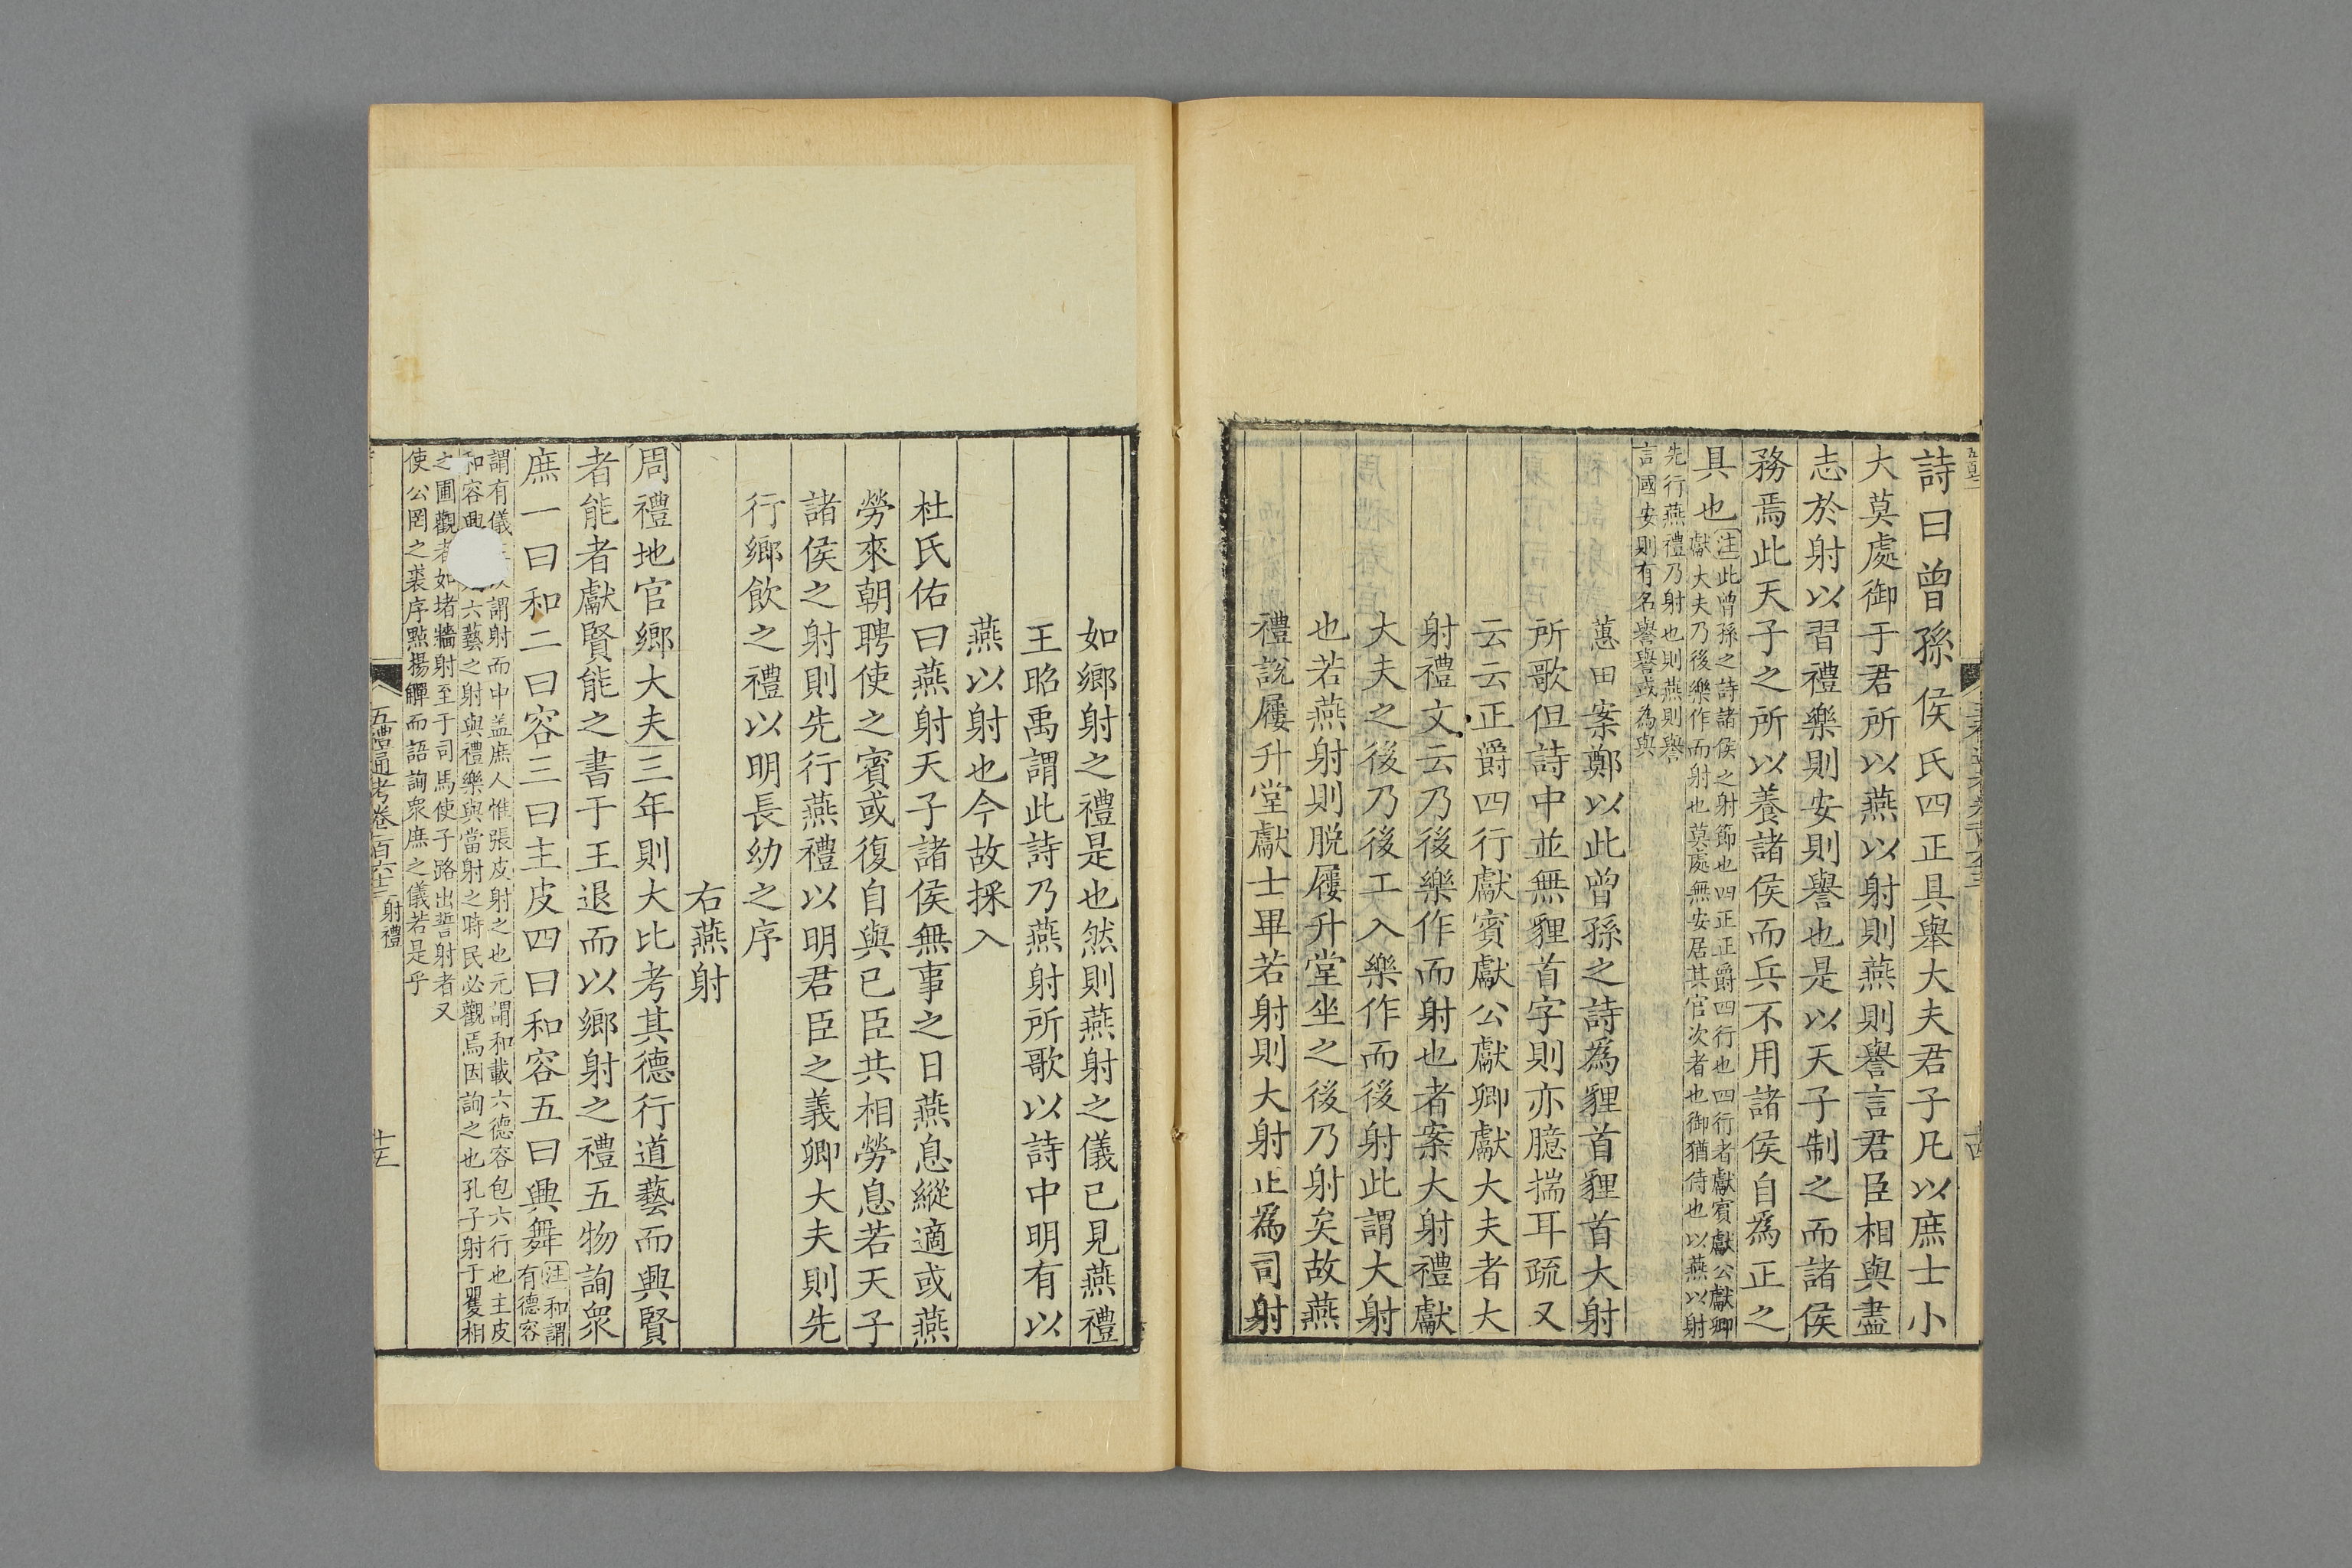 詩曰曾孫侯氏四正具舉大夫君子凡以庶士小
大莫處御于君所以燕以射則燕則譽言君臣相與盡
志於射以習禮樂則安則譽也是以天子制之而諸侯
務焉此天子之所以養諸侯而兵不用諸侯自為正之
具也
注此曾孫之詩諸侯之射節也四正正爵四行也四行者獻賓獻公獻卿
獻大夫乃後樂作而射也莫處無安居其官次者也御猶侍也以燕以射
先行燕禮乃射也則燕則譽
言國安則有名譽譽或為與
蕙田案鄭以此曾孫之詩為貍首貍首大射
所歌但詩中並無貍首字則亦臆揣耳疏又
云云正爵四行獻賓獻公獻卿獻大夫者大
射禮文云乃後樂作而射也者案大射禮獻
大夫之後乃後工入樂作而後射此謂大射
也若燕射則脫屨升堂坐之後乃射矣故燕
禮說屨升堂獻士畢若射則大射正為司射
如鄉射之禮是也然則燕射之儀已見燕禮
王昭禹謂此詩乃燕射所歌以詩中明有以
燕以射也今故採入
杜氏佑曰燕射天子諸侯無事之日燕息縱適或燕
勞來朝聘使之賓或復自與已臣共相勞息若天子
諸侯之射則先行燕禮以明君臣之義卿大夫則先
行鄉飲之禮以明長幼之序
右燕射
周禮地官鄉大夫三年則大比考其德行道藝而興賢
者能者獻賢能之書于王退而以鄉射之禮五物詢眾
庶一曰和二曰容三曰主皮四曰和容五曰興舞
注和謂
有德容
謂有儀謂射而中盖庶人惟張皮射之也元謂和載六德容包六行也主皮
和容興六藝之射與禮樂與當射之時民必觀焉因詢之也孔子射于矍相
之圃觀者如堵牆射至于司馬使子路出誓射者又
使公罔之裘序點揚觶而語詢眾庶之儀若是乎
五禮通考卷一百六十三 射禮